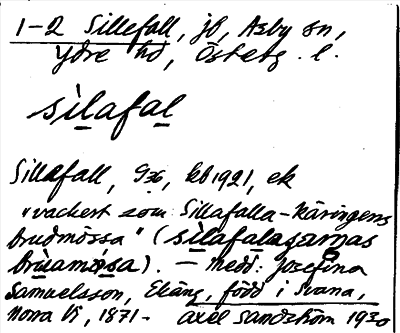 1-2 Sillefall, jb, Asby sn,
Ydre hd, Östergötl. l.
sìlafal
Sillafall, G36, kb 1921, ek
"vackert som Sillafalla-käringens
brudmössa" (sìlafalagærnas
brùamøsa). — Medd: Josefina
Samuelsson, Ekäng, född i Svana,
Norra Vi, 1871- Axel Sandström 1930